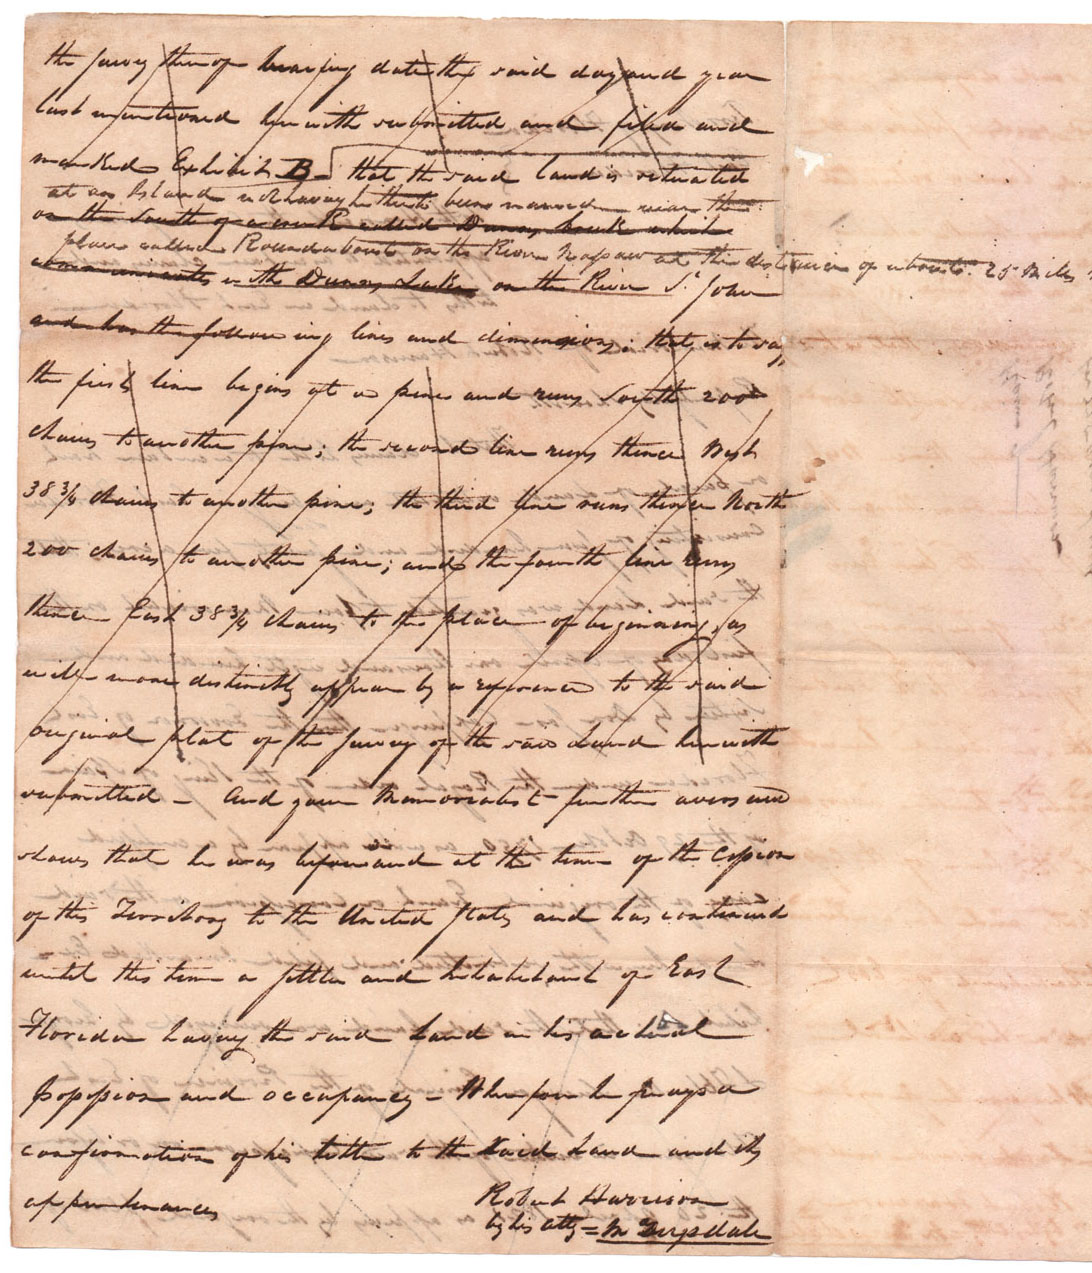 the survey thereof bearing date the said day and year
last mentioned herewith submitted and filed and
marked Exhibit B that the said land is situated
at an Island not having hitherto been named near the
on the South of a creek called Dunns Creek which
place called Roundabout on the River Nassau at the distance of about 25 Miles
communicates with Dunns Lake on the River St John
and has the following lines and dimensions; that is to say,
the first line begins at a pine and runs South 200
chains to another pine; the second line runs thence West
38 3/4 chains to another pine; the third line runs thence North
200 chains to another pine; and the fourth line runs
thence East 38 3/4 chains to the place of beginning, as
will more distinctly appear by a reference to the said
original plat of the survey of the said Land herewith
submitted - And your Memorialist further avers and
shews that he was before and at the time of the Cession
of this Territory to the United States and has continued
until this time a settler and Inhabitant of East
Florida having the said Land in his actual
possession and occupancy - Wherefore he prays a
confirmation of his title to the said Land and its
appurtenances
Robert Harrison
by his atty =